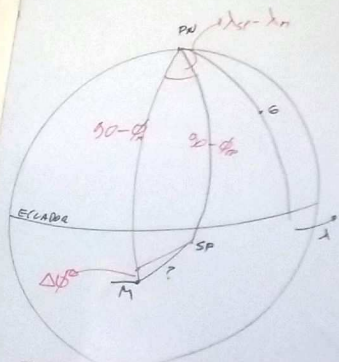 PN
λSP-λM
90-ϕM
90-ϕSP
G
ECUADOR
λ
SP
Δϕ
?
M